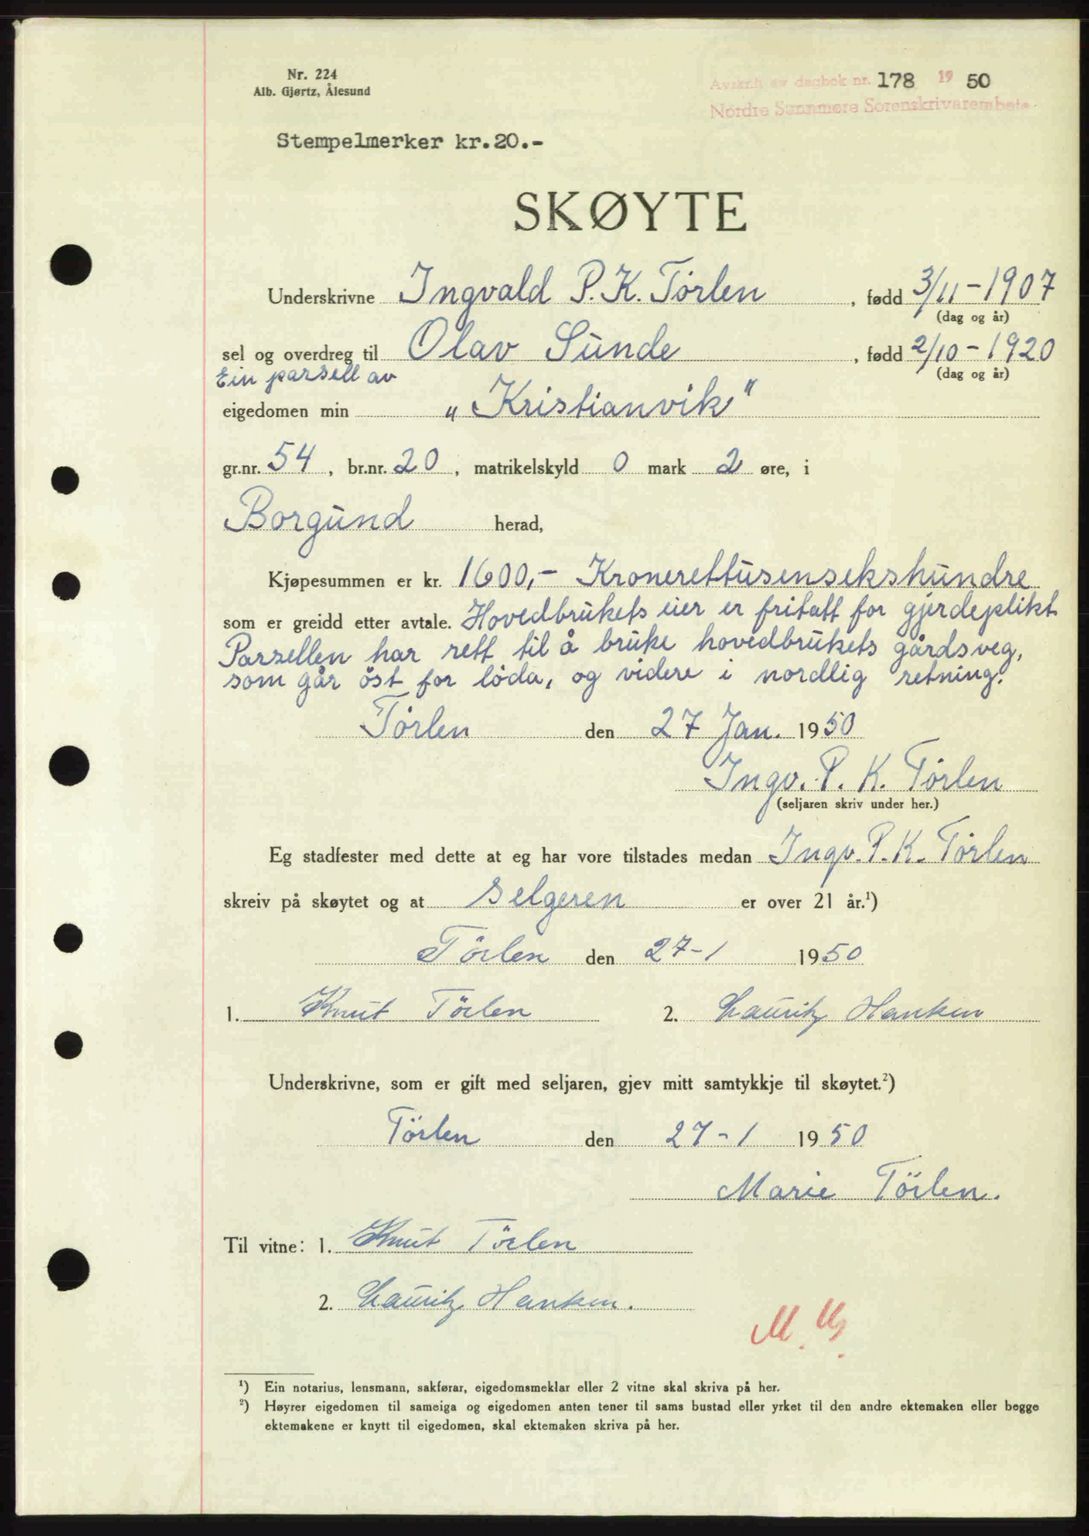 Nr. 224
Alb. Gjørtz, Ålesund
Avskrift av dagbok nr. 178 1950
Nordre Sunnmøre Sorenskrivarembete
Stempelmerker kr.20.-
SKØYTE
Underskrivne Ingvald P. K. Tørlen, fødd 3/11-1907
(dag og år)
sel og overdreg til Olav Sunde, fødd 2/10-1920
(dag og år)
Ein parsell av
eigedomen min „Kristianvik"
gr.nr. 54, br.nr. 20, matrikelskyld 0 mark 2 øre, i
Borgund herad,
Kjøpesummen er kr. 1600,- Kronerettusensekshundre
som er greidd etter avtale. Hovedbrukets eier er fritatt for gjerdeplikt
Parsellen har rett til å bruke hovedbrukets gårdsveg,
som går öst for löda, og videre i nordlig retning.
Tørlen den 27 Jan. 1950
Ingv. P. K. Tørlen
(seljaren skriv under her.)
Eg stadfester med dette at eg har vore tilstades medan Ingv. P. K. Tørlen
skreiv på skøytet og at Selgeren er over 21 år.¹)
Törlen den 27-1 1950
1. Knut Törlen 2. Lauritz Hanken
Underskrivne, som er gift med seljaren, gjev mitt samtykkje til skøytet.²)
Törlen den 27-1 1950
Marie Törlen.
Til vitne: 1. Knut Törlen
2. Lauritz Hanken.
¹) Ein notarius, lensmann, sakførar, eigedomsmeklar eller 2 vitne skal skriva på her.
²) Høyrer eigedomen til sameiga og eigedomen anten tener til sams bustad eller yrket til den andre ektemaken eller begge
ektemakene er knytt til eigedomen, skal ektemaken skriva på her.